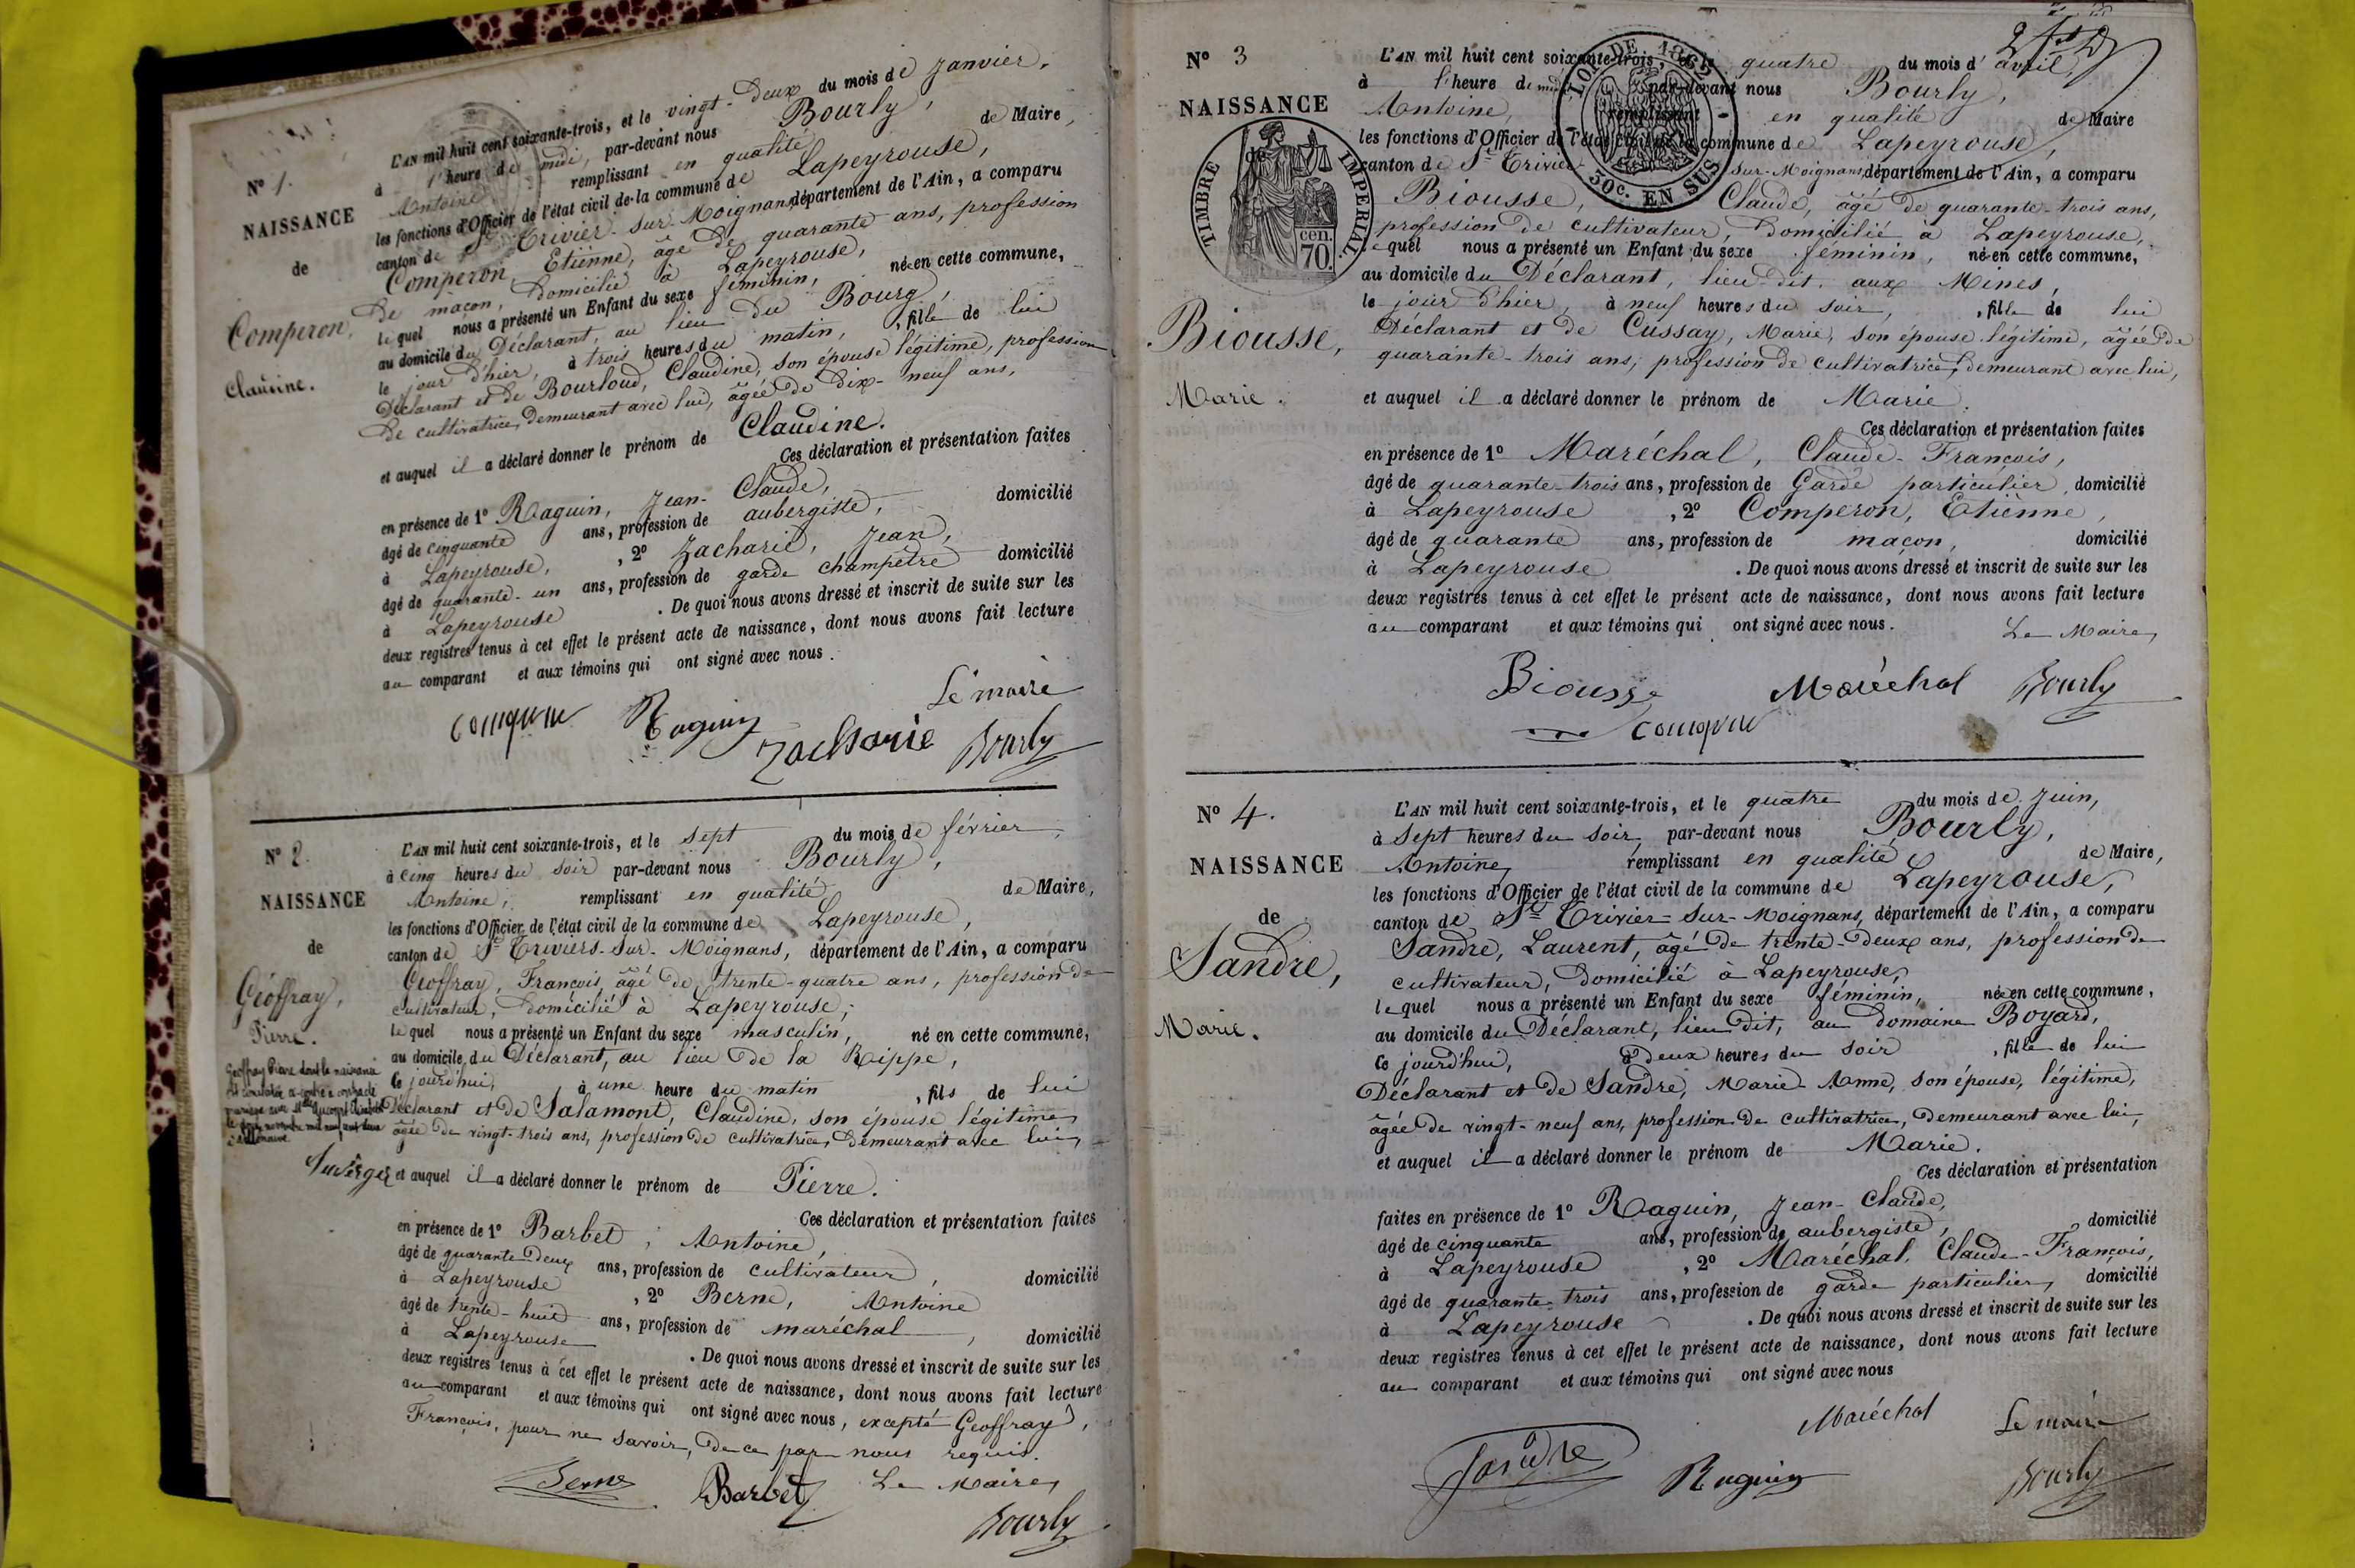 N° 1.
NAISSANCE
de
Comperon,
Claudine.
L'AN mil huit cent soixante-trois, et le vingt-deux du mois de Janvier,
à l'heure de midi, par-devant nous Bourly,
Antoine remplissant en qualité de Maire,
les fonctions d'Officier de l'état civil de la commune de Lapeyrouse,
canton de St Trivier-sur-Moignans, département de l'Ain, a comparu
Comperon, Etienne, âgé de quarante ans, profession
de maçon, domicilié à Lapeyrouse,
lequel nous a présenté un Enfant du sexe féminin, née en cette commune,
au domicile du Déclarant, au lieu du Bourg,
le jour d'hier, à trois heures du matin, , fille de lui
Déclarant et de Bourloud, Claudine, son épouse légitime, profession
de cultivatrice, demeurant avec lui, âgée de dix-neuf ans,
et auquel il a déclaré donner le prénom de Claudine.
Ces déclaration et présentation faites
en présence de 1° Raguin, Jean-Claude,
âgé de cinquante ans, profession de aubergiste, domicilié
à Lapeyrouse, , 2° Zacharie, Jean,
âgé de quarante-un ans, profession de garde champêtre domicilié
à Lapeyrouse . De quoi nous avons dressé et inscrit de suite sur les
deux registres tenus à cet effet le présent acte de naissance, dont nous avons fait lecture
au comparant et aux témoins qui ont signé avec nous.
Le maire
Raguin Zacharie Bourly
N° 2.
NAISSANCE
de
Géoffray,
Pierre.
Geoffray Pierre dont la naissance
est constatée ci-contre a contracté
L'AN mil huit cent soixante-trois, et le sept du mois de février,
à cinq heures du soir par-devant nous Bourly,
Antoine, remplissant en qualité de Maire,
les fonctions d'Officier de l'état civil de la commune de Lapeyrouse,
canton de St Triviers-sur-Moignans, département de l'Ain, a comparu
Géoffray, François, âgé de trente-quatre ans, profession de
cultivateur, domicilié à Lapeyrouse;
lequel nous a présenté un Enfant du sexe masculin, né en cette commune,
au domicile du Déclarant, au lieu de la Rippe,
ce jourd'hui, à une heure du matin , fils de lui
Déclarant et de Salamont, Claudine, son épouse légitime
âgée de vingt-trois ans, profession de cultivatrice, demeurant avec lui,
et auquel il a déclaré donner le prénom de Pierre.
Ces déclaration et présentation faites
en présence de 1° Barbet, Antoine,
âgé de quarante deux ans, profession de cultivateur, domicilié
à Lapeyrouse , 2° Berne, Antoine
âgé de trente-huit ans, profession de maréchal, domicilié
à Lapeyrouse . De quoi nous avons dressé et inscrit de suite sur les
deux registres tenus à cet effet le présent acte de naissance, dont nous avons fait lecture
au comparant et aux témoins qui ont signé avec nous, excepté Geoffray,
François, pour ne savoir, de ce par nous requis.
Berne Barbet Le Maire,
Bourly
N° 3
NAISSANCE
de
TIMBRE IMPERIAL
70 cen.
Biousse,
Marie.
DE 1862
50c. EN SUS
L'AN mil huit cent soixante-trois, et le quatre du mois d'avril,
à l'heure de midi par-devant nous Bourly,
Antoine, remplissant en qualité de Maire
les fonctions d'Officier de l'état civil de la commune de Lapeyrouse,
canton de St Trivier sur-Moignans, département de l'Ain, a comparu
Biousse, Claude, âgé de quarante-trois ans,
profession de cultivateur, domicilié à Lapeyrouse,
lequel nous a présenté un Enfant du sexe féminin, née en cette commune,
au domicile du Déclarant, lieu dit, aux Mines,
le jour d'hier, à neuf heures du soir, , fille de lui
Déclarant et de Cussay, Marie, son épouse légitime, âgée de
quarante-trois ans, profession de cultivatrice, demeurant avec lui,
et auquel il a déclaré donner le prénom de Marie.
Ces déclaration et présentation faites
en présence de 1° Maréchal, Claude-François,
âgé de quarante-trois ans, profession de Garde particulier, domicilié
à Lapeyrouse , 2° Comperon, Etienne,
âgé de quarante ans, profession de maçon, domicilié
à Lapeyrouse . De quoi nous avons dressé et inscrit de suite sur les
deux registres tenus à cet effet le présent acte de naissance, dont nous avons fait lecture
au comparant et aux témoins qui ont signé avec nous. Le Maire,
Biousse Maréchal Bourly
N° 4.
NAISSANCE
de
Sandre,
Marie.
L'AN mil huit cent soixante-trois, et le quatre du mois de Juin,
à sept heures du soir, par-devant nous Bourly,
Antoine, remplissant en qualité de Maire,
les fonctions d'Officier de l'état civil de la commune de Lapeyrouse,
canton de St Trivier-sur-Moignans, département de l'Ain, a comparu
Sandre, Laurent, âgé de trente-deux ans, profession de
cultivateur, domicilié à Lapeyrouse,
lequel nous a présenté un Enfant du sexe féminin, née en cette commune,
au domicile du Déclarant, lieu dit, au domaine Boyard,
ce jourd'hui, à deux heures du soir , fille de lui
Déclarant et de Sandre, Marie-Anne, son épouse, légitime,
âgée de vingt-neuf ans, profession de cultivatrice, demeurant avec lui,
et auquel il a déclaré donner le prénom de Marie.
Ces déclaration et présentation
faites en présence de 1° Raguin, Jean-Claude,
âgé de cinquante ans, profession de aubergiste, domicilié
à Lapeyrouse , 2° Maréchal, Claude-François,
âgé de quarante-trois ans, profession de garde particulier, domicilié
à Lapeyrouse . De quoi nous avons dressé et inscrit de suite sur les
deux registres tenus à cet effet le présent acte de naissance, dont nous avons fait lecture
au comparant et aux témoins qui ont signé avec nous
Maréchal Le maire
Sandre Raguin Bourly